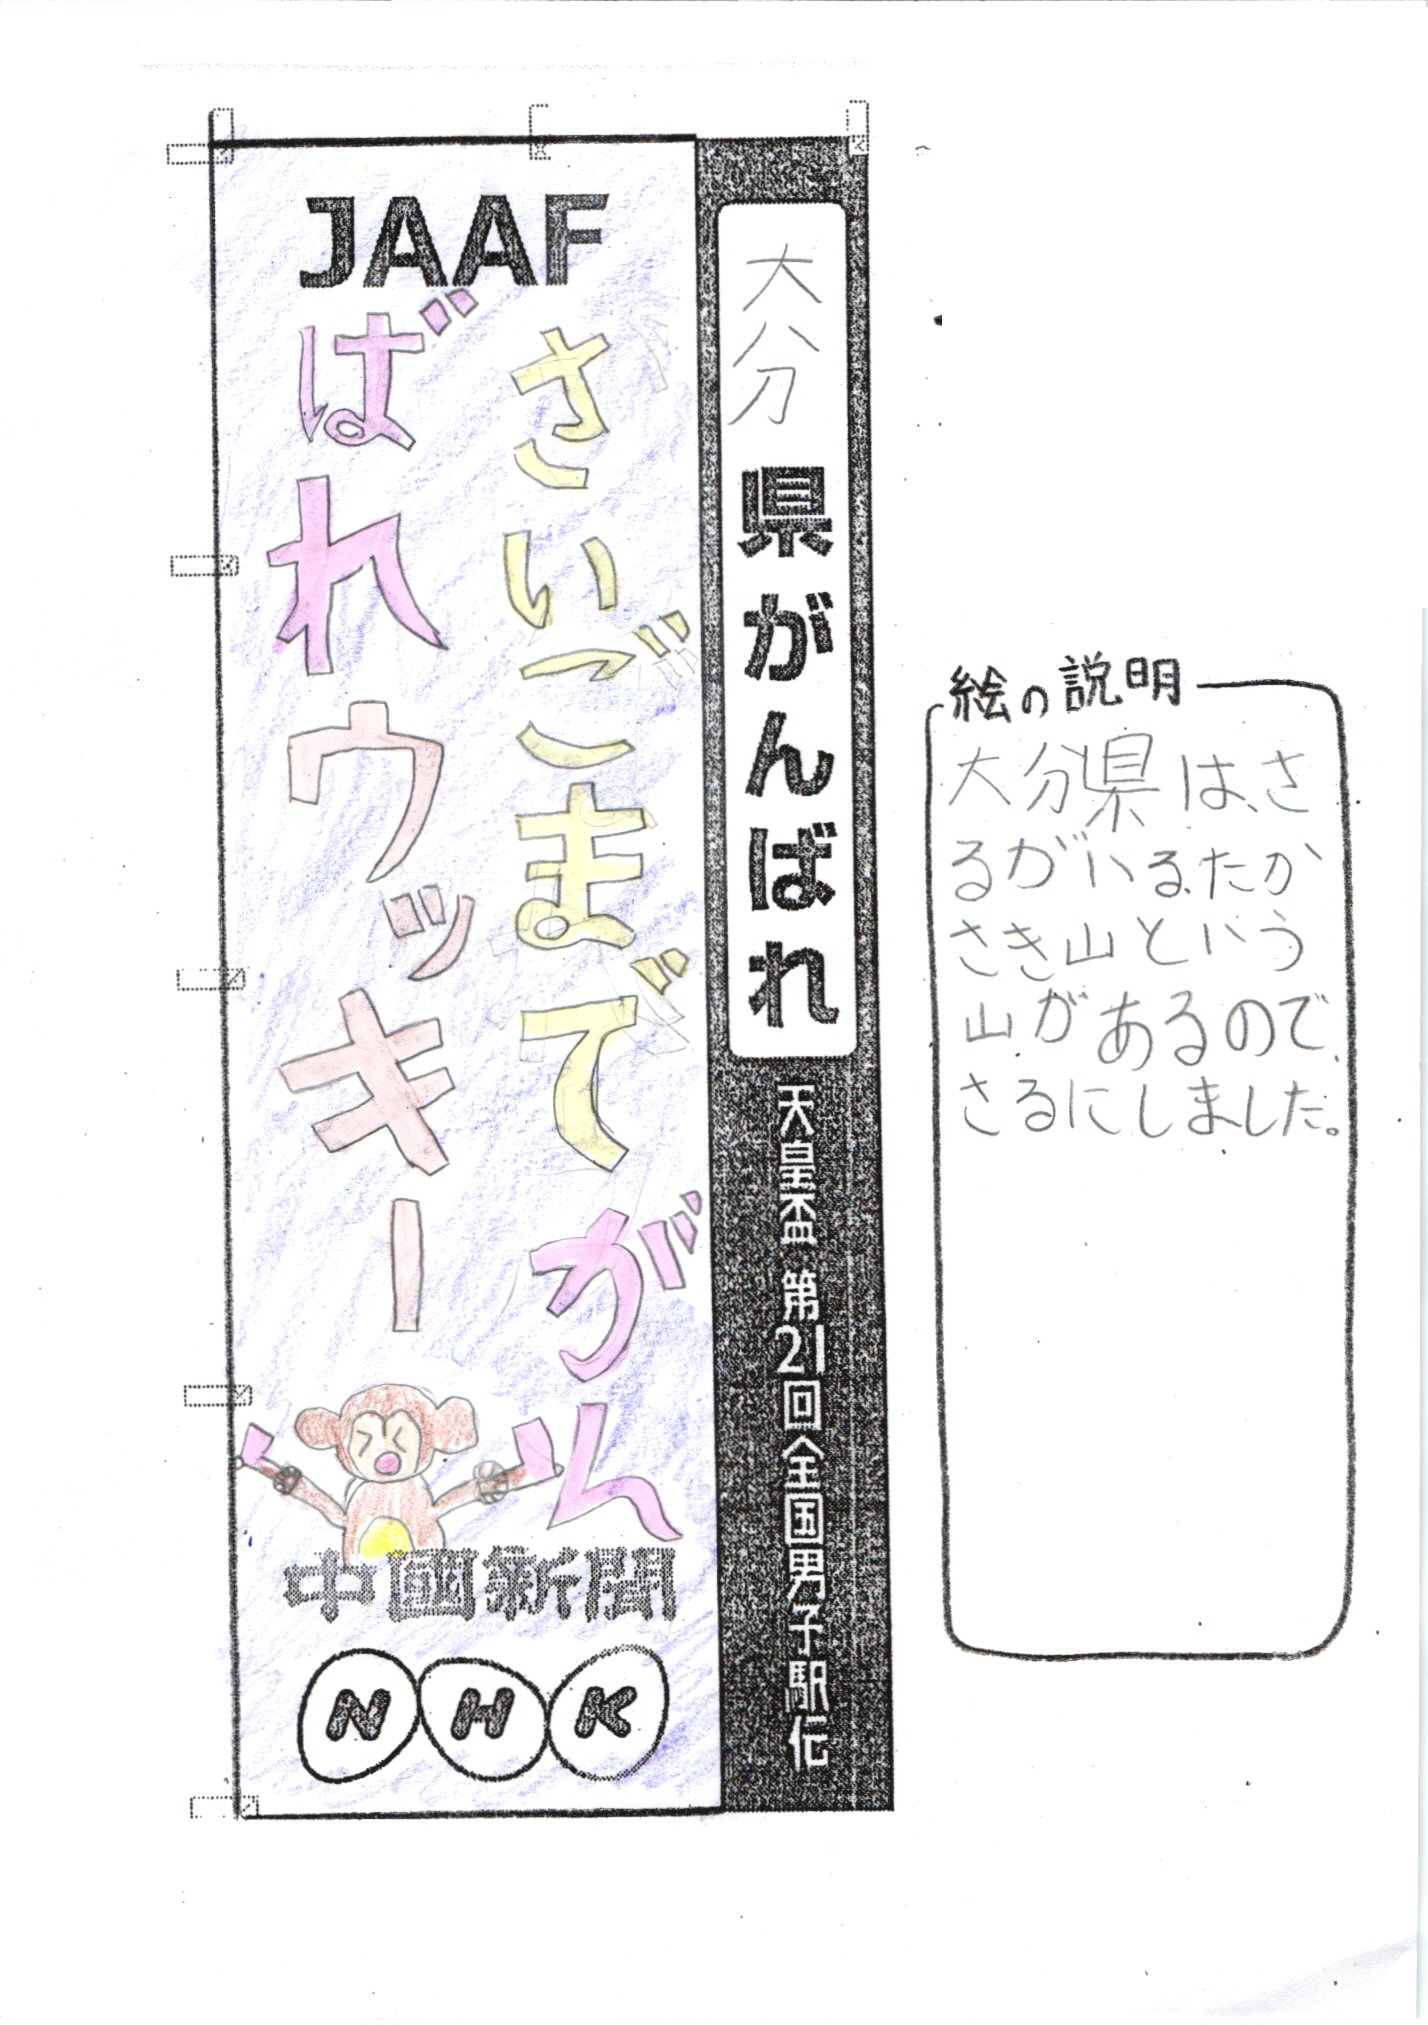 JAAF
さいごまでがん
ばれウッキー
中國新聞
NHK
大分県がんばれ
天皇盃 第21回全国男子駅伝
絵の説明
大分県は、さ
るがいるたか
さき山という
山があるので、
さるにしました。